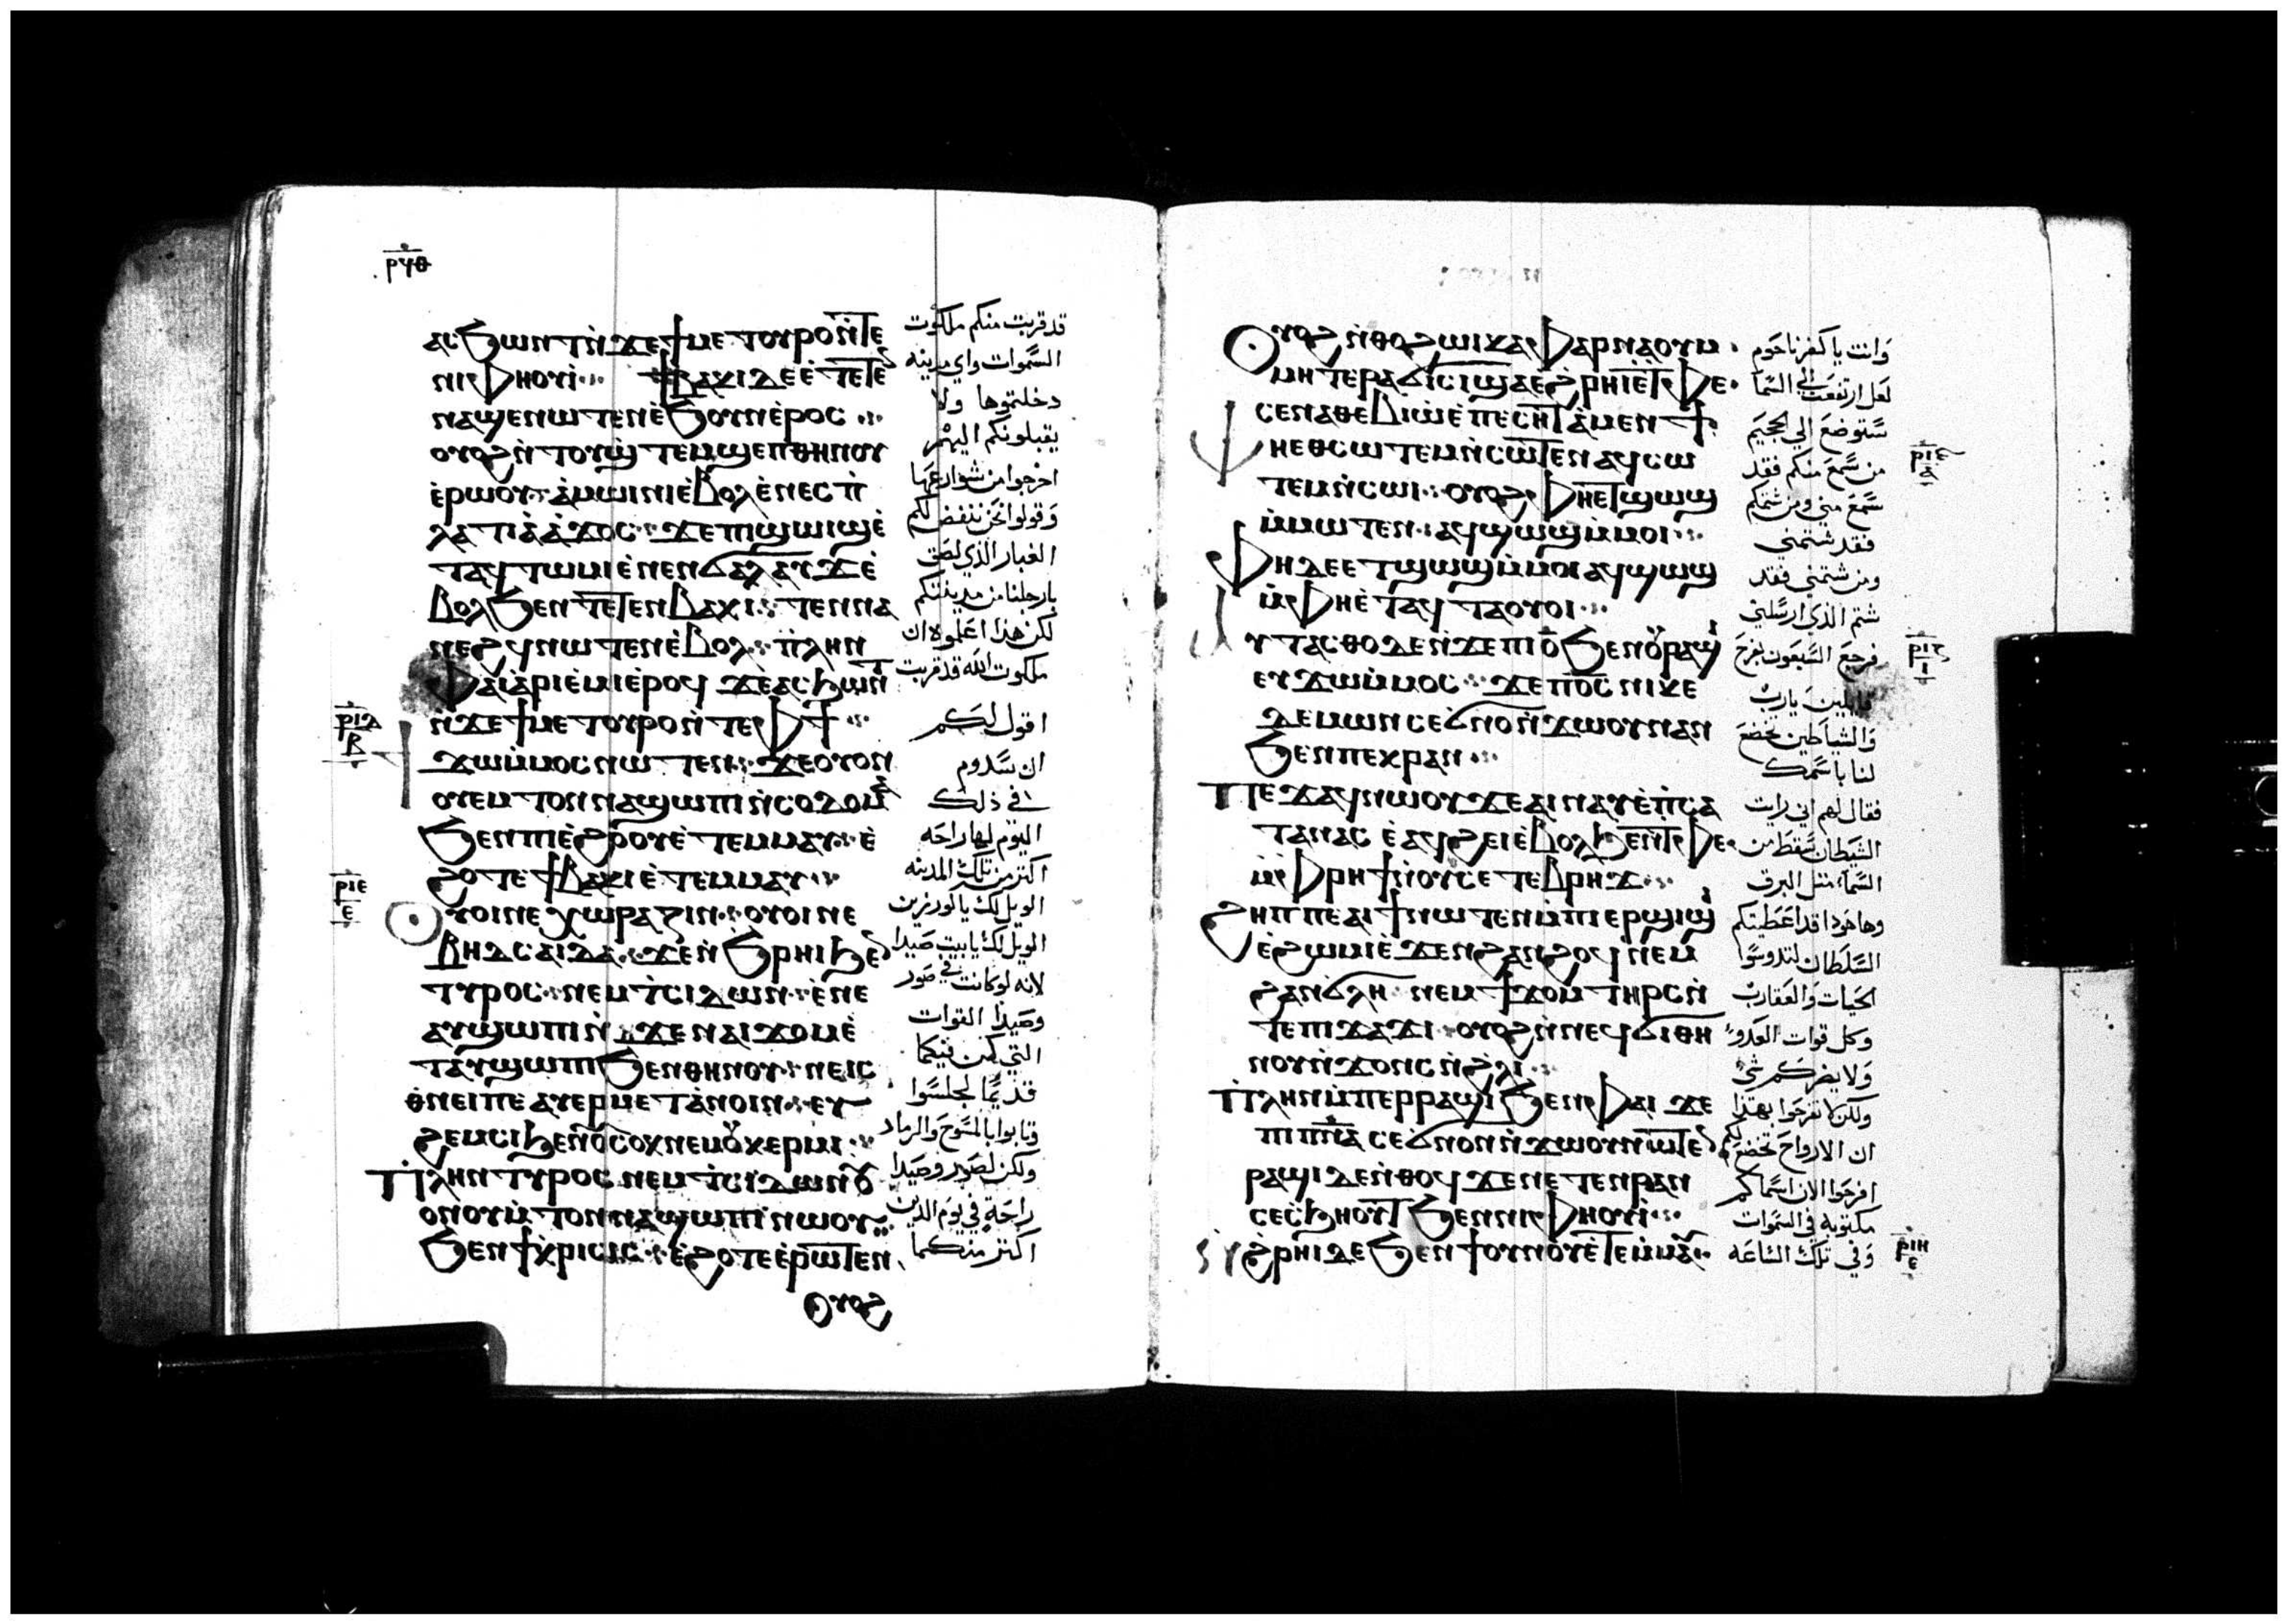 ⲣϥⲑ
ⲁⲥϧⲱⲛⲧ ⲛ̀ϫⲉϯⲙⲉⲧⲟⲩⲣⲟ ⲛ̀ⲧⲉ
ⲛⲓⲫⲏⲟⲩⲓ̀ ϯⲃⲁⲕⲓ ⲇⲉ ⲉ̀ⲧⲉⲧⲉ
ⲛⲁϣⲉⲛⲱⲧⲉⲛ ⲉ̀ϧⲟⲩⲛ ⲉ̀ⲣⲟⲥ
ⲟⲩⲟϩ ⲛ̀ⲧⲟⲩϣ̀ⲧⲉⲙϣⲉⲡ ⲑⲏⲛⲟⲩ
ⲉ̀ⲣⲱⲟⲩ ⲁ̀ⲙⲱⲓⲛⲓ ⲉ̀ⲃⲟⲗ ⲉ̀ⲛⲉⲥⲡ̀
ⲗⲁⲧⲓⲁ̀ ⲁ̀ϫⲟⲥ ϫⲉ ⲡⲓϣⲱⲓϣ ⲉ̀
ⲧⲁϥⲧⲱⲙⲓ ⲉ̀ⲛⲉⲛϭⲁⲗⲁⲩϫ ⲉ̀
ⲃⲟⲗ ϧⲉⲛ ⲧⲉⲧⲉⲛⲃⲁⲕⲓ ⲧⲉⲛⲛⲁ
ⲛⲉϩϥ ⲛⲱⲧⲉⲛ ⲉ̀ⲃⲟⲗ ⲡ̀ⲗⲏⲛ
ⲫⲁⲓ ⲁ̀ⲣⲓⲉ̀ⲙⲓ ⲉ̀ⲣⲟϥ ϫⲉ ⲁⲥϧⲱⲛⲧ
ⲛ̀ϫⲉϯⲙⲉⲧⲟⲩⲣⲟ ⲛ̀ⲧⲉ ⲫϯ
ⲣⲓⲇ
ⲃ
ϯϫⲱ ⲙ̀ⲙⲟⲥ ⲛⲱⲧⲉⲛ ϫⲉ ⲟⲩⲟⲛ
ⲟⲩⲉⲙⲧⲟⲛ ⲛⲁϣⲱⲡⲓ ⲛ̀ⲥⲟⲇⲟⲙⲁ
ϧⲉⲛ ⲡⲓⲉ̀ϩⲟⲟⲩ ⲉ̀ⲧⲉⲙⲙⲁⲩ ⲉ̀
ϩⲟⲧⲉ ϯⲃⲁⲕⲓ ⲉ̀ⲧⲉⲙⲙⲁⲩ
ⲣⲓⲉ
ⲉ
ⲟⲩⲟⲓ ⲛⲉ ⲭⲱⲣⲁⲍⲓⲛ ⲟⲩⲟⲓ ⲛⲉ
ⲃⲏⲇⲥⲁⲓⲇⲁ ϫⲉ ⲛ̀ϧⲣⲏⲓ ϧⲉⲛ
ⲧⲩⲣⲟⲥ ⲛⲉⲙ ⲧ̀ⲥⲓⲇⲱⲛ ⲉ̀ⲛⲉ
ⲁⲩϣⲱⲡⲓ ⲛ̀ϫⲉ ⲛⲁⲓϫⲟⲙ ⲉ̀
ⲧⲁⲩϣⲱⲡⲓ ϧⲉⲛ ⲑⲏⲛⲟⲩ ⲛⲉ ⲓⲥ
ⲑⲛⲉⲓ ⲡⲉ ⲁⲩⲉⲣⲙⲉⲧⲁⲛⲟⲓⲛ ⲉⲩ
ϩⲉⲙⲥⲓ ϧⲉⲛ ⲟⲩⲥⲟⲕ ⲛⲉⲙ ⲟⲩⲕⲉⲣⲙⲓ
ⲡ̀ⲗⲏⲛ ⲧⲩⲣⲟⲥ ⲛⲉⲙ ⲧ̀ⲥⲓⲇⲱⲛ ⲟⲩ
ⲟⲛ ⲟⲩⲙ̀ⲧⲟⲛ ⲛⲁϣⲱⲡⲓ ⲛⲱⲟⲩ
ϧⲉⲛ ϯⲕ̀ⲣⲓⲥⲓⲥ ⲉ̀ϩⲟⲧⲉ ⲉ̀ⲣⲱⲧⲉⲛ
ⲟⲩⲟϩ
قد قربت منكم ملكوت
السموات واي مدينه
دخلتموها ولا
يقبلونكم اليهم
اخرجوا من شوارعها
وقولوا نحن ننفض لكم
الغبار الذي لصق
بارجلنا من مدينتكم
لكن هذا اعلموه ان
ملكوت الله قد قربت
اقول لكم
ان سدوم
في ذلك
اليوم لها راحه
اكثر من تلك المدينه
الويل لك يا كورزين
الويل لك يا بيت صيدا
لانه لو كانت في صور
وصيدا القوات
التي كن فيكما
قديما لجلسوا
وتابوا بالمسوح والرماد
ولكن لصور وصيدا
راحة في يوم الدين
اكثر منكما
ⲟⲩⲟϩ ⲛ̀ⲑⲟ ϩⲱⲓ ⲕⲁⲫⲁⲣⲛⲁⲟⲩⲙ
ⲙⲏ ⲧⲉⲣⲁϭⲓⲥⲓ ϣⲁ ⲉ̀ϩⲣⲏⲓ ⲉ̀ⲧⲫⲉ
ⲥⲉⲛⲁⲑⲉⲃⲓⲱ ⲉ̀ⲡⲉⲥⲏⲧ ⲁ̀ⲙⲉⲛϯ
ⲫⲏⲉⲑⲥⲱⲧⲉⲙ ⲛ̀ⲥⲱⲧⲉⲛ ⲁϥⲥⲱ
ⲧⲉⲙ ⲛ̀ⲥⲱⲓ ⲟⲩⲟϩ ⲫⲏⲉⲧϣⲱϣ
ⲙ̀ⲙⲱⲧⲉⲛ ⲁϥϣⲱϣ ⲙ̀ⲙⲟⲓ
ⲫⲏ ⲇⲉ ⲉⲧϣⲱϣ ⲙ̀ⲙⲟⲓ ⲁϥϣⲱϣ
ⲙ̀ⲫⲏⲉ̀ⲧⲁϥⲧⲁⲟⲩⲟⲓ
ⲁⲩⲧⲁⲥⲑⲟ ⲇⲉ ⲛ̀ϫⲉ ⲡⲓⲟ̅ ϧⲉⲛ ⲟⲩⲣⲁϣⲓ
ⲉⲩϫⲱ ⲙ̀ⲙⲟⲥ ϫⲉ ⲡⲟ̅ⲥ̅ ⲛⲓⲕⲉ
ⲇⲉⲙⲱⲛ ⲥⲉϭⲛⲟⲛ ⲛ̀ϫⲱⲟⲩ ⲛⲁⲛ
ϧⲉⲛ ⲡⲉⲕⲣⲁⲛ
ⲡⲉϫⲁϥ ⲛⲱⲟⲩ ϫⲉ ⲁⲓⲛⲁⲩ ⲉ̀ⲡ̀ⲥⲁ
ⲧⲁⲛⲁⲥ ⲉ̀ⲁϥϩⲉⲓ ⲉ̀ⲃⲟⲗ ϧⲉⲛ ⲧⲫⲉ
ⲙ̀ⲫⲣⲏϯ ⲛ̀ⲟⲩⲥⲉⲧⲉⲃⲣⲏϫ
ϩⲏⲡⲡⲉ ⲁⲓϯ ⲛⲱⲧⲉⲛ ⲙ̀ⲡⲓⲉⲣϣⲓϣⲓ
ⲉ̀ϩⲱⲙⲓ ⲉ̀ϫⲉⲛ ϩⲁⲛϩⲟϥ ⲛⲉⲙ
ϩⲁⲛϭⲗⲏ ⲛⲉⲙ ϯϫⲟⲙ ⲧⲏⲣⲥ ⲛ̀
ⲧⲉ ⲡⲓϫⲁϫⲓ ⲟⲩⲟϩ ⲛ̀ⲛⲉϥϭⲓ ⲑⲏ
ⲛⲟⲩ ⲛ̀ϫⲟⲛⲥ ⲛ̀ϩⲗⲓ
ⲡ̀ⲗⲏⲛ ⲙ̀ⲡⲉⲣⲣⲁϣⲓ ϧⲉⲛ ⲫⲁⲓ ϫⲉ
ⲛⲓⲡ̅ⲛ̅ⲁ̅ ⲥⲉϭⲛⲟⲛ ⲛ̀ϫⲱⲟⲩ ⲛⲱⲧⲉⲛ
ⲣⲁϣⲓ ⲇⲉ ⲛ̀ⲑⲟϥ ϫⲉ ⲛⲉⲧⲉⲛⲣⲁⲛ
ⲥⲉⲥ̀ϧⲏⲟⲩⲧ ϧⲉⲛ ⲛⲓⲫⲏⲟⲩⲓ̀
ⲛ̀ϩⲣⲏⲓ ⲇⲉ ϧⲉⲛ ϯⲟⲩⲛⲟⲩ ⲉ̀ⲧⲉⲙⲙⲁⲩ
وانت يا كفرناحوم
لعل ارتفعت الي السما
ستوضع الي الجحيم
من سمع منكم فقد
سمع مني ومن شتمكم
فقد شتمني
ومن شتمني فقد
شتم الذي ارسلني
فرجع السبعون بفرح
قايلين يارب
والشياطين تخضع
لنا باسمك
فقال لهم اني رايت
الشيطان سقط من
السما مثل البرق
وها هوذا قد اعطيتكم
السلطان لتدوسوا
الحيات والعقارب
وكل قوات العدو
ولا يضركم شي
ولكن لا تفرحوا بهذا
ان الارواح تخضع لكم
افرحوا الان اسماكم
مكتوبة في السموات
وفي تلك الساعه
ⲣⲓⲏ
ⲉ